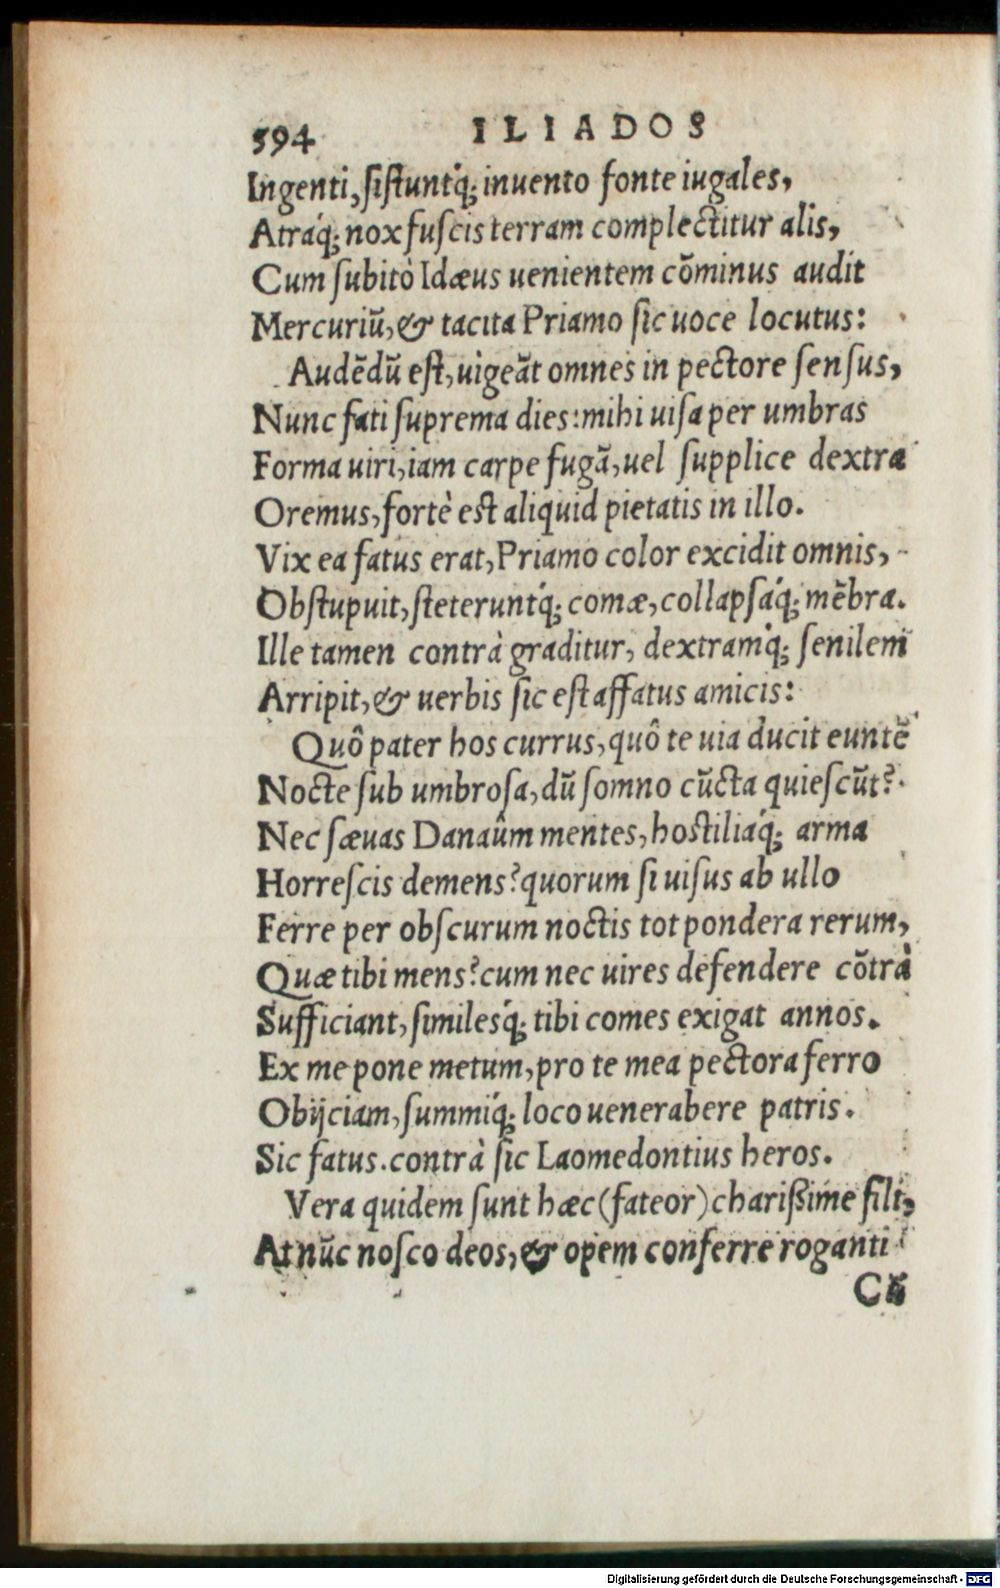 594 ILIADOS
Ingenti, ſiſtuntq́; inuento fonte iugales,
Atraq́; nox fuſcis terram complectitur alis,
Cum ſubitò Idæus uenientem cõminus audit
Mercuriũ, & tacita Priamo ſic uoce locutus:
Audẽdũ eſt, uigeãt omnes in pectore ſenſus,
Nunc fati ſuprema dies: mihi uiſa per umbras
Forma uiri, iam carpe fugã, uel ſupplice dextra
Oremus, fortè eſt aliquid pietatis in illo.
Vix ea fatus erat, Priamo color excidit omnis,
Obſtupuit, ſteteruntq́; comæ, collapſaq́; mẽbra.
Ille tamen contrà graditur, dextramq́; ſenilem
Arripit, & uerbis ſic eſt affatus amicis:
Quô pater hos currus, quô te uia ducit euntẽ
Nocte ſub umbroſa, dũ ſomno cũcta quieſcũt?
Nec ſæuas Danaûm mentes, hoſtiliaq́; arma
Horreſcis demens? quorum ſi uiſus ab ullo
Ferre per obſcurum noctis tot pondera rerum,
Quæ tibi mens? cum nec uires defendere cõtrà
Sufficiant, ſimilesq́; tibi comes exigat annos.
Ex me pone metum, pro te mea pectora ferro
Obijciam, ſummiq́; loco uenerabere patris.
Sic fatus. contrà ſic Laomedontius heros.
Vera quidem ſunt hæc (fateor) charißime fili,
At nũc noſco deos, & opem conferre roganti
Digitalisierung gefördert durch die Deutsche Forschungsgemeinschaft - DFG